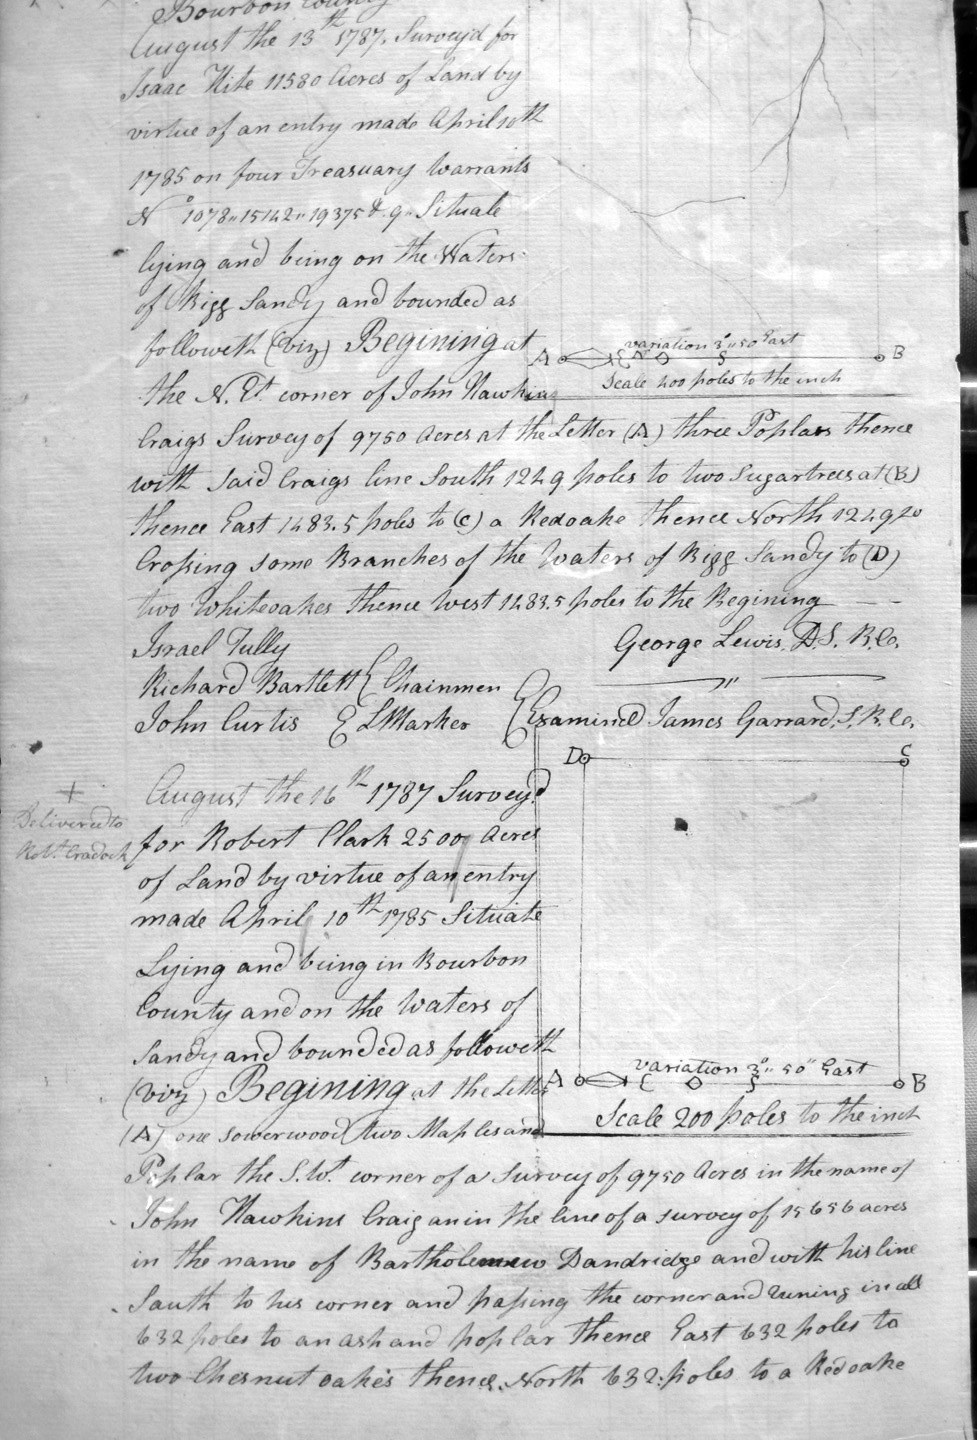 Bourbon County
August the 13th 1787. Survey'd for
Isaac Hite 11580 Acres of Land by
virtue of an entry made April 10th
1785 on four Treasuary Warrants
No 1078,, 15142,, 19375 & 9,, Situate
lying and being on the Waters
of Bigg Sandy and bounded as
followeth (viz) Begining at
the N. Et. corner of John Hawkins
Craigs Survey of 9750 Acres at the Letter (A) three Poplars thence
with said Craigs line South 1249 poles to two Sugartrees at (B)
thence East 1483.5 poles to (C) a Redoake thence North 1249 po
Crossing some Branches of the Waters of Bigg Sandy to (D)
two Whiteoakes thence West 1483.5 poles to the Begining
George Lewis. D.S. B.Co.
Israel Tully
Richard Bartlett Chainmen
John Curtis Marker
Examined James Garrard. S.B.Co.
A variation 3°,, 50 East B
Scale 400 poles to the inch
Delivered to
Robt. Cradock
August the 16th 1787 Survey'd
for Robert Clark 2500 Acres
of Land by virtue of an entry
made April 10th 1785 Situate
Lying and being in Bourbon
County and on the Waters of
Sandy and bounded as followeth
(viz) Begining at the Letter
(A) one sowerwood two Maples and
Poplar the S.Wt. corner of a Survey of 9750 Acres in the name of
John Hawkins Craig an in the line of a survey of 15656 acres
in the name of Bartholemew Dandridge and with his line
South to his corner and passing the corner and runing in all
632 poles to an ash and poplar thence East 632 poles to
two Chesnut oakes thence North 632 poles to a Redoake
D C
A variation 3°,, 50" East B
Scale 200 poles to the inch